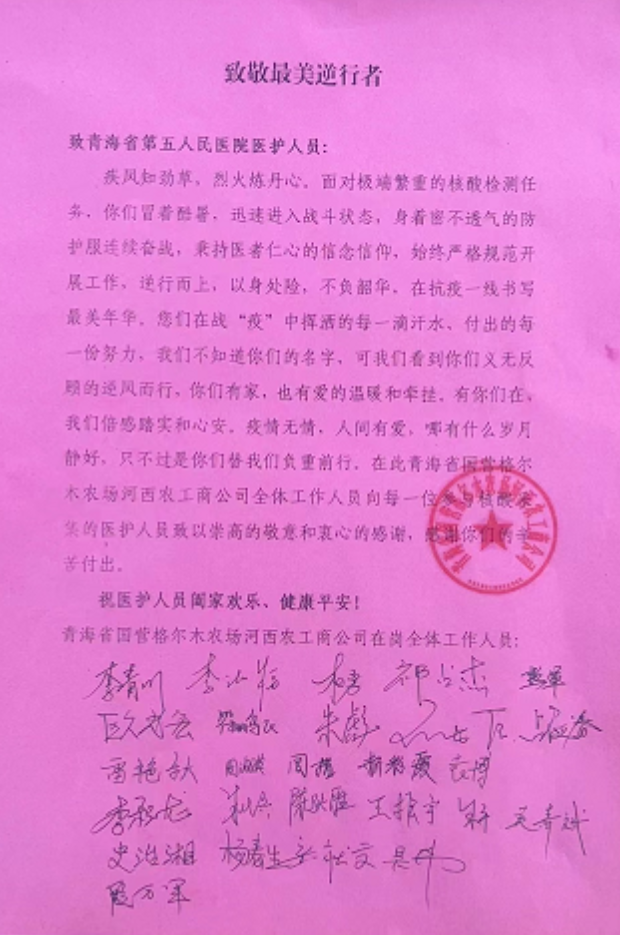 致敬最美逆行者
致青海省第五人民医院医护人员：
疾风知劲草，烈火炼丹心。面对极端繁重的核酸检测任
务，你们冒着酷暑，迅速进入战斗状态，身着密不透气的防
护服连续奋战，秉持医者仁心的信念信仰，始终严格规范开
展工作，逆行而上，以身处险，不负韶华，在抗疫一线书写
最美年华。您们在战“疫”中挥洒的每一滴汗水、付出的每
一份努力，我们不知道你们的名字，可我们看到你们义无反
顾的逆风而行，你们有家，也有爱的温暖和牵挂。有你们在，
我们倍感踏实和心安。疫情无情，人间有爱，哪有什么岁月
静好，只不过是你们替我们负重前行。在此青海省国营格尔
木农场河西农工商公司全体工作人员向每一位参与核酸采
集的医护人员致以崇高的敬意和衷心的感谢，感谢你们的辛
苦付出。
祝医护人员阖家欢乐、健康平安！
青海省国营格尔木农场河西农工商公司在岗全体工作人员：
李青川 祁占杰
朱彪
雷艳秋
王振宇
史治湘 杨春生